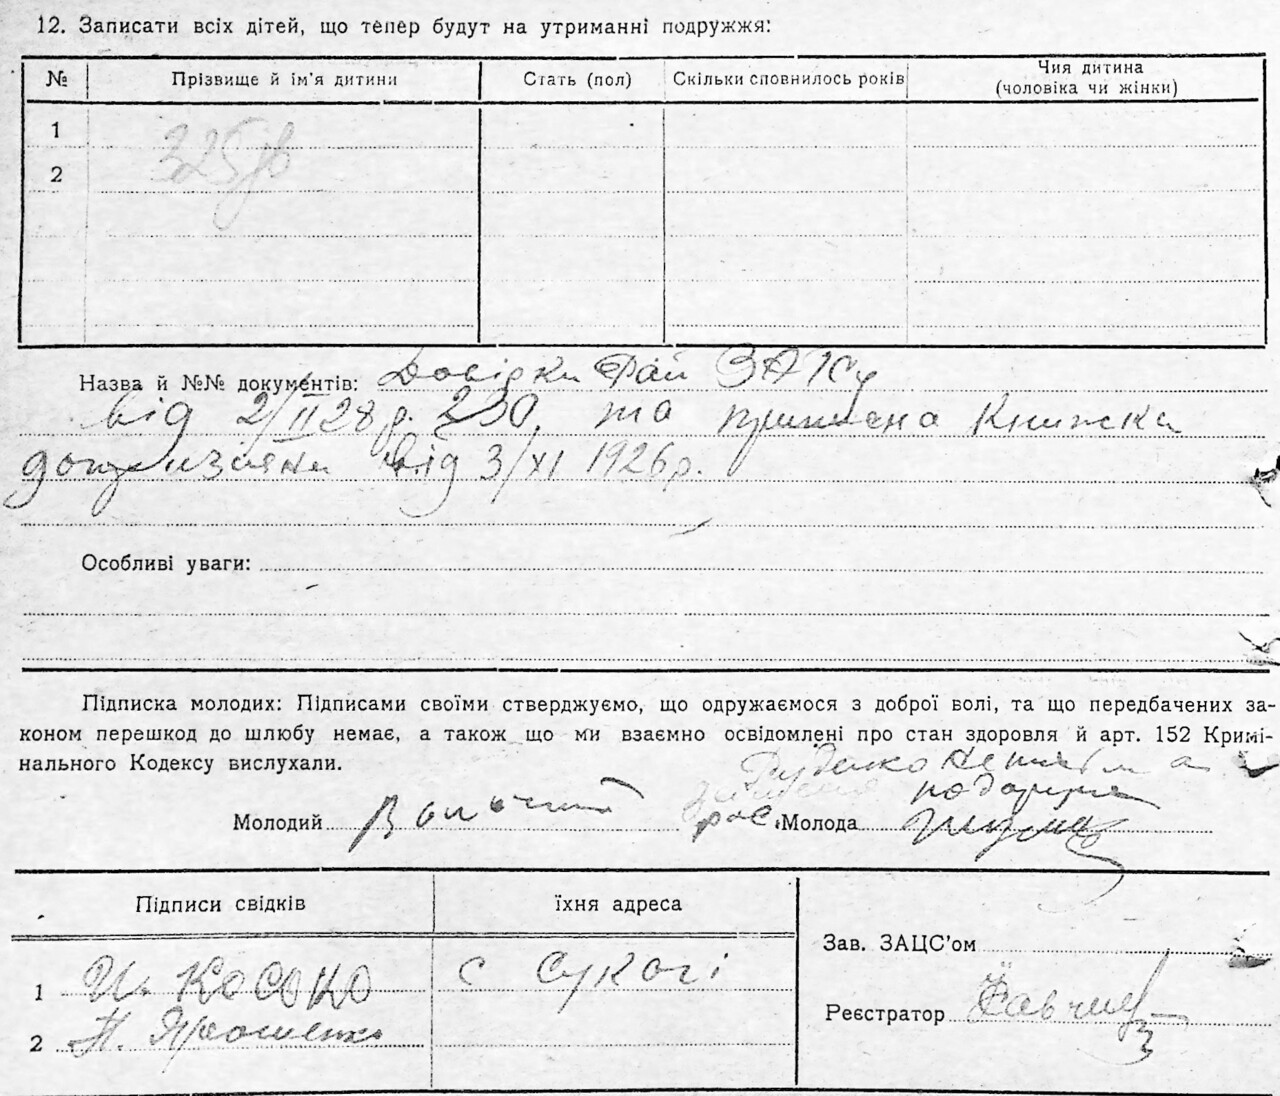 12. Записати всіх дітей, що тепер будут на утриманні подружжя:
№ Прізвище й ім'я дитини Стать (пол) Скільки сповнилось років Чия дитина
(чоловіка чи жінки)
1
325
2
Назва й №№ документів: Довідки Рай ЗАГСу
від 2/II 28 р. 230. та приписна Книжка
допризивника від 3/XI 1926 р.
Особливі уваги:
Підписка молодих: Підписами своїми стверджуємо, що одружаємося з доброї волі, та що передбачених за-
коном перешкод до шлюбу немає, а також що ми взаємно освідомлені про стан здоровля й арт. 152 Кримі-
нального Кодексу вислухали.
Молодий Молода
Підписи свідків їхня адреса
Зав. ЗАЦС'ом
1 И. Косоко с
Реєстратор
2 Ярошенко